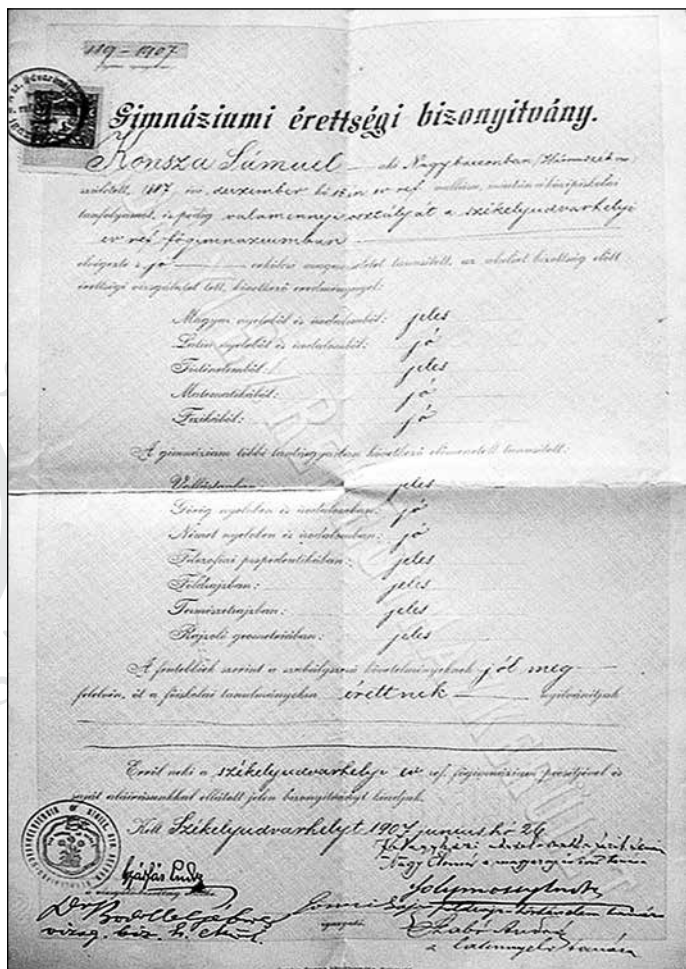 119 – 1907
Gimnáziumi érettségi bizonyitvány.
Konsza Sámuel aki Nagybaczonban (Háromszék m)
született, 1887 évi deczember hó 18.-n ev ref. vallásu, miután a középiskolai
tanfolyamot, és pedig valamennyi osztályát a székelyudvarhelyi
ev ref. főgimnáziumban
elvégezte s jó erkölcsi magaviseletet tanusitott, az alulirt bizottság előtt
érettségi vizsgálatot tett, következő eredménynyel:
Magyar nyelvből és irodalomból: jeles
Latin nyelvből és irodalomból: jó
Történelemből: jeles
Matematikából: jó
Fizikából: jó
A gimnázium többi tantárgyaiban következő előmenetelt tanusitott:
Vallástanban: jeles
Görög nyelvben és irodalomban: jó
Német nyelvben és irodalomban: jó
Filozófiai propedeutikában: jeles
Földrajzban: jeles
Természetrajzban: jeles
Rajzoló geometriában: jeles
A fentebbiek szerint a szabályszerü követelményeknek jól meg-
felelvén, őt a főiskolai tanulmányokra érettnek nyilvánitjuk
Erről neki a székelyudvarhelyi ev ref. főgimnázium pecsétjével és
saját aláirásunkkal ellátott jelen bizonyitványt kiadjuk.
Kelt Székelyudvarhelyt 1907 junius hó 26
Nagy
a magyar
Solymossy
történelem tanára
Szabó András
a latin nyelv tanára
Dr
vizsg. biz. h. elnök.
igazgató